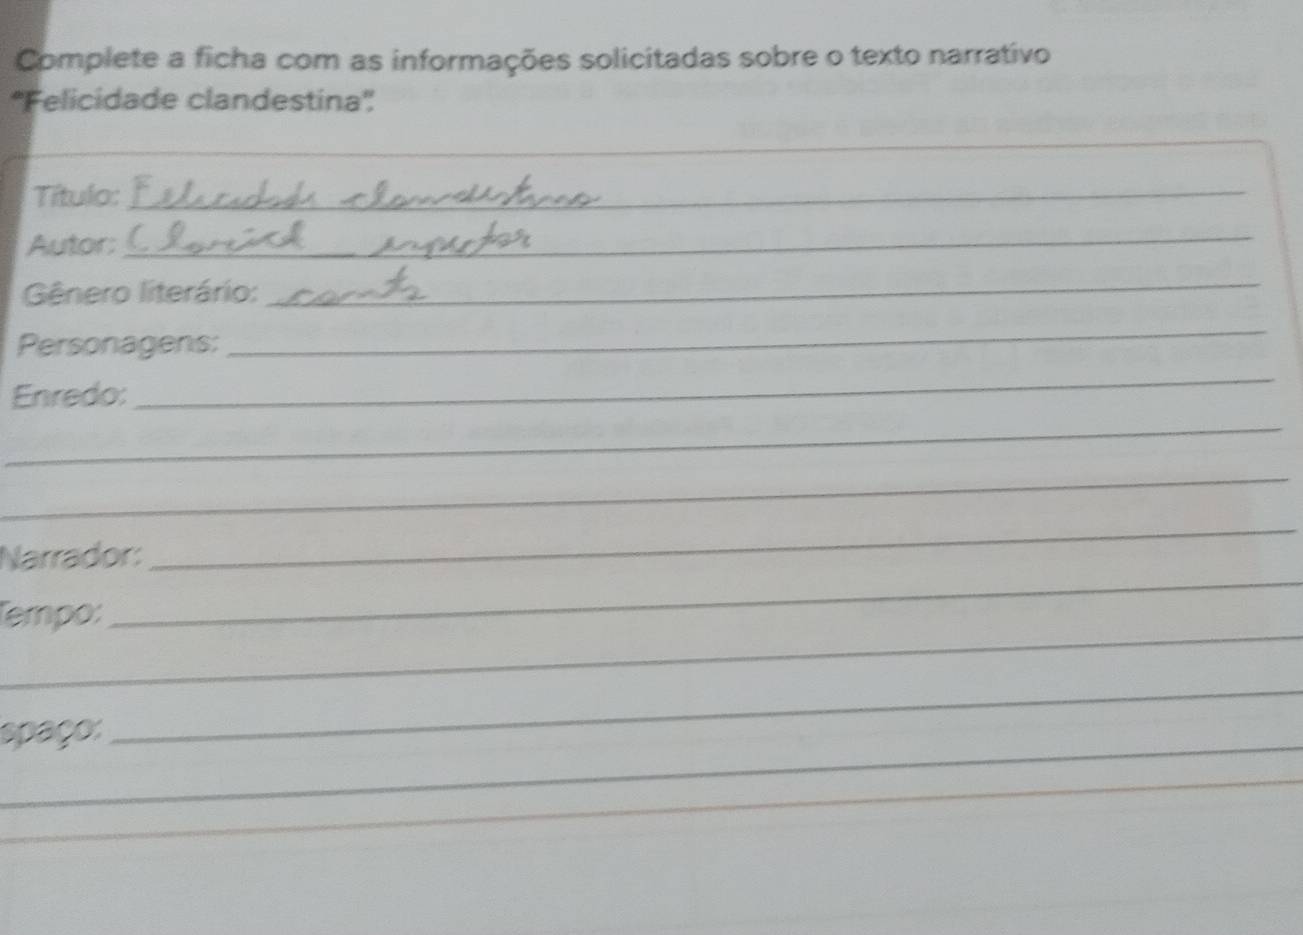 Complete a ficha com as informações solicitadas sobre o texto narrativo
"Felicidade clandestina".
Título: Felicidade clandestina
Autor: Claricd
Gênero literário: conto
Personagens:
Enredo:
Narrador:
Tempo:
spaço: